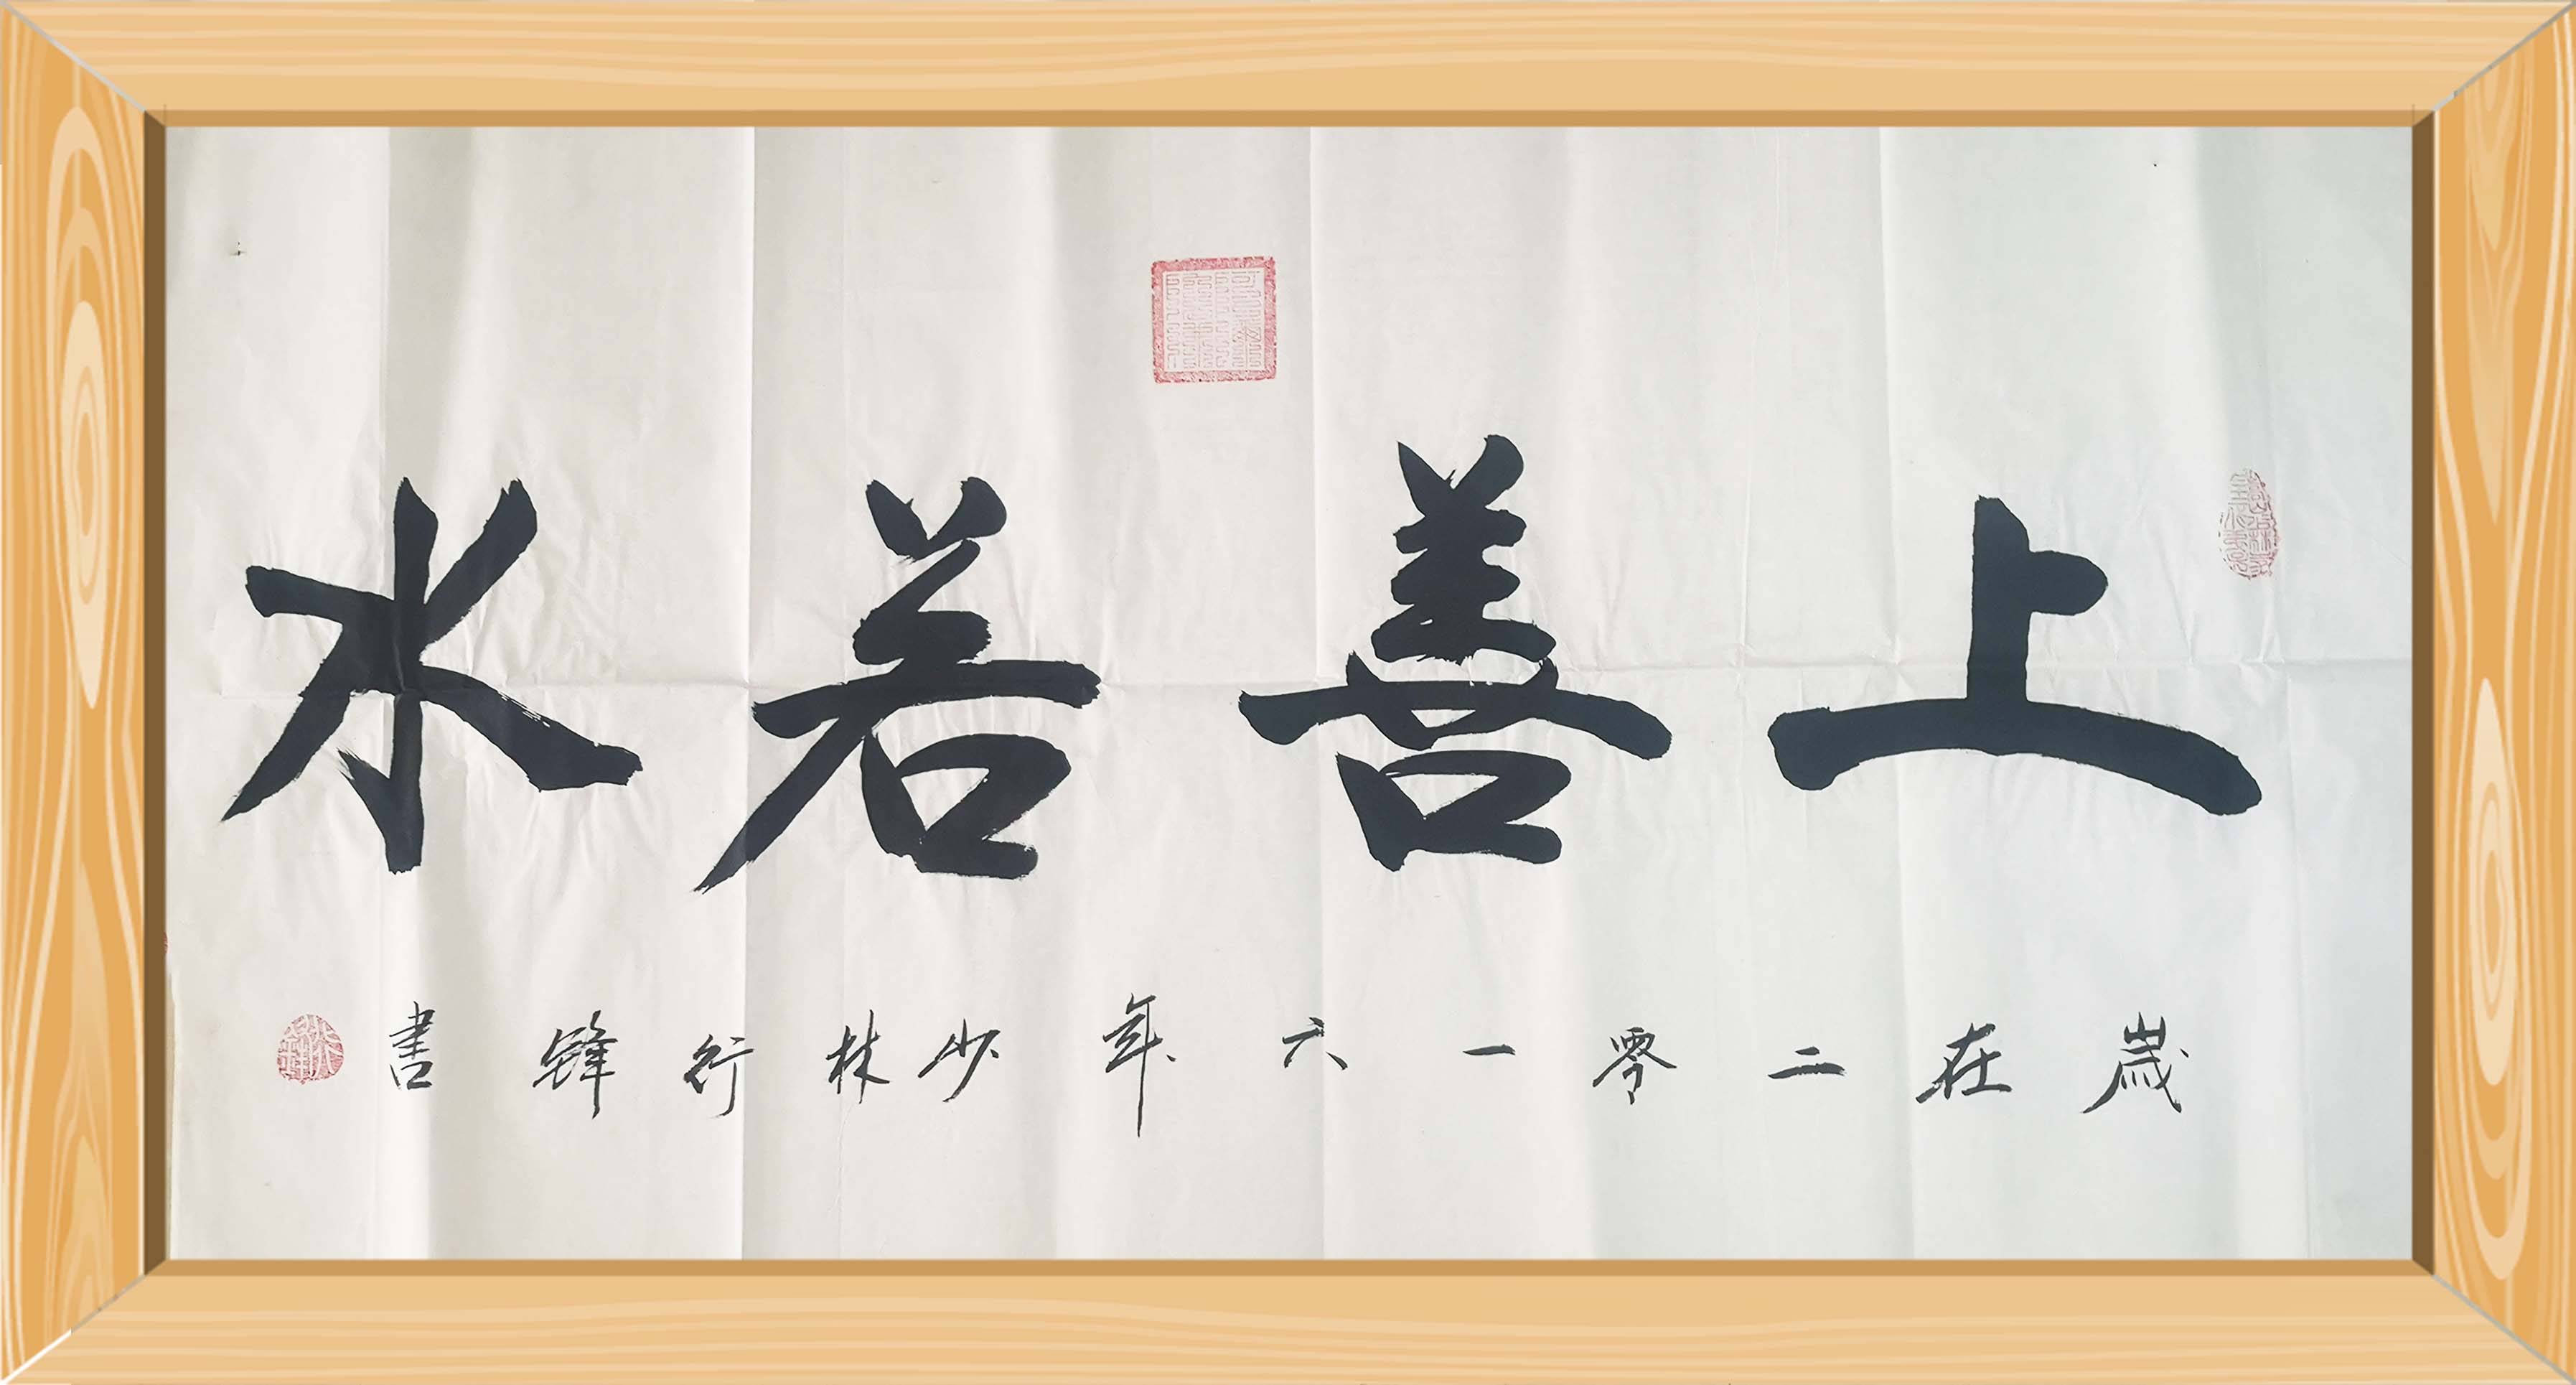 上善若水
歲在二零一六年少林行鋒書